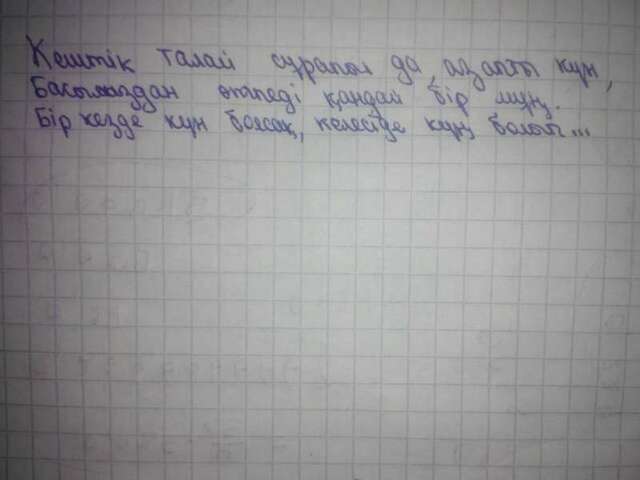 Кештік талай сұрапыл да, азапты күн,
Басымыздан өтпеді қандай бір мұң.
Бір кезде күн болсақ, келесіде күң болып...